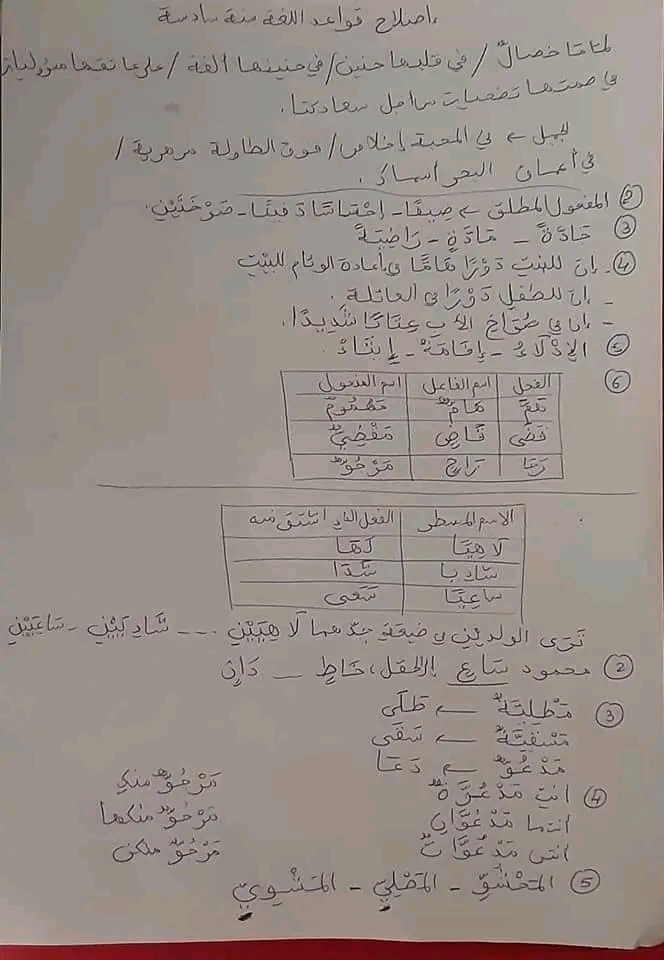 اصلاح قواعد اللغة سنة سادسة
خصالٌ / في قلبها حنين / في حنينها ألفة / على عاتقها
في صمتها تضحيات سعادتنا.
في المحبة إخلاص / فوق الطاولة مزهرية /
في أعماق البحر أسماك.
② المفعول المطلق ← صيفًا - إحْسَاسًا دَفِينًا - صَرْخَتَيْنِ.
③ حَادَّةً - مَادَّةٍ - رَاضِيَةً
④ - إن للبنت دَوْرًا هَامًّا في إعادة الوئام للبيت
- إنّ للطفلِ دَوْرًا في العائلة.
- إنّ في صُرَاخِ الأبِ عِتَابًا شَدِيدًا.
⑤ الإدْلَاءُ - إقَامَةٌ - إِيتَاءٌ.
⑥ الفعل اسم الفاعل اسم المفعول
هَمَّ هَامٌّ مَهْمُومٌ
قَضَى قَاضٍ مَقْضِيٌّ
رَجَا رَاجٍ مَرْجُوٌّ
الاسم المسطر الفعل الذي اشتق منه
لَاهِيًا لَهَا
شَادِيا شَدَا
سَاعِيًا سَعَى
نَرَى الولدين في ضيعة جدّهما لَاهِيَيْنِ ... شَادِيَيْنِ - سَاعِيَيْنِ
② محمود سَاعٍ إلى الحقل، خَاطٍ - دَانٍ
③ مَطْلِيَّةٌ ← طَلَى
مَسْقِيَّةٌ ← سَقَى
مَدْعُوٌّ ← دَعَا
④ أنتِ مَدْعُوَّةٌ مَرْجُوٌّ منكِ
أنتما مَدْعُوَّانِ مَرْجُوٌّ منكما
أنتن مَدْعُوَّاتٌ مَرْجُوٌّ منكن
⑤ المَحْشُوِّ - المَقْلِيِّ - المَشْوِيِّ